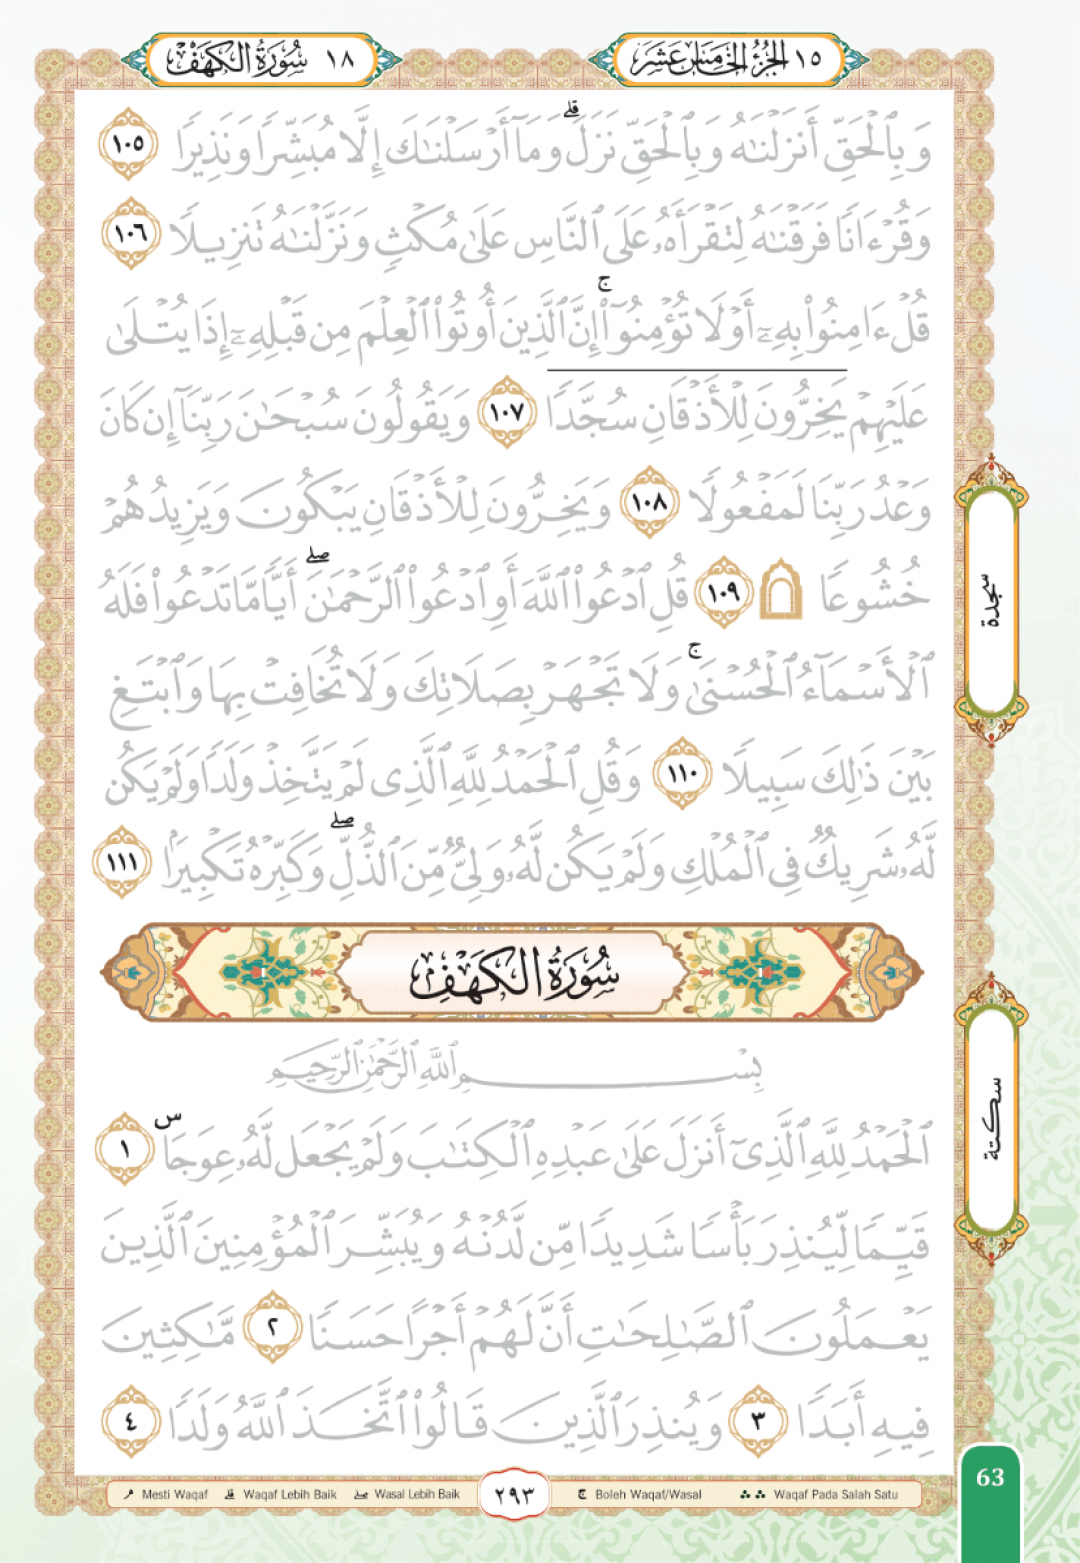 ١٥ الجزء الخامس عشر
١٨ سورة الكهف
وَبِٱلْحَقِّ أَنزَلْنَٰهُ وَبِٱلْحَقِّ نَزَلَ ۗ وَمَآ أَرْسَلْنَٰكَ إِلَّا مُبَشِّرًا وَنَذِيرًا ١٠٥
وَقُرْءَانًا فَرَقْنَٰهُ لِتَقْرَأَهُۥ عَلَى ٱلنَّاسِ عَلَىٰ مُكْثٍ وَنَزَّلْنَٰهُ تَنزِيلًا ١٠٦
قُلْ ءَامِنُوا۟ بِهِۦٓ أَوْ لَا تُؤْمِنُوٓا۟ ۚ إِنَّ ٱلَّذِينَ أُوتُوا۟ ٱلْعِلْمَ مِن قَبْلِهِۦٓ إِذَا يُتْلَىٰ
عَلَيْهِمْ يَخِرُّونَ لِلْأَذْقَانِ سُجَّدًا ١٠٧ وَيَقُولُونَ سُبْحَٰنَ رَبِّنَآ إِن كَانَ
وَعْدُ رَبِّنَا لَمَفْعُولًا ١٠٨ وَيَخِرُّونَ لِلْأَذْقَانِ يَبْكُونَ وَيَزِيدُهُمْ
خُشُوعًا ۩ ١٠٩ قُلِ ٱدْعُوا۟ ٱللَّهَ أَوِ ٱدْعُوا۟ ٱلرَّحْمَٰنَ ۖ أَيًّا مَّا تَدْعُوا۟ فَلَهُ
ٱلْأَسْمَآءُ ٱلْحُسْنَىٰ ۚ وَلَا تَجْهَرْ بِصَلَاتِكَ وَلَا تُخَافِتْ بِهَا وَٱبْتَغِ
بَيْنَ ذَٰلِكَ سَبِيلًا ١١٠ وَقُلِ ٱلْحَمْدُ لِلَّهِ ٱلَّذِى لَمْ يَتَّخِذْ وَلَدًا وَلَمْ يَكُن
لَّهُۥ شَرِيكٌ فِى ٱلْمُلْكِ وَلَمْ يَكُن لَّهُۥ وَلِىٌّ مِّنَ ٱلذُّلِّ ۖ وَكَبِّرْهُ تَكْبِيرًۢا ١١١
سُورَةُ الكَهْفِ
بِسْمِ ٱللَّهِ ٱلرَّحْمَٰنِ ٱلرَّحِيمِ
ٱلْحَمْدُ لِلَّهِ ٱلَّذِىٓ أَنزَلَ عَلَىٰ عَبْدِهِ ٱلْكِتَٰبَ وَلَمْ يَجْعَل لَّهُۥ عِوَجَاۜ ١
قَيِّمًا لِّيُنذِرَ بَأْسًا شَدِيدًا مِّن لَّدُنْهُ وَيُبَشِّرَ ٱلْمُؤْمِنِينَ ٱلَّذِينَ
يَعْمَلُونَ ٱلصَّٰلِحَٰتِ أَنَّ لَهُمْ أَجْرًا حَسَنًا ٢ مَّٰكِثِينَ
فِيهِ أَبَدًا ٣ وَيُنذِرَ ٱلَّذِينَ قَالُوا۟ ٱتَّخَذَ ٱللَّهُ وَلَدًا ٤
سجدة
سكتة
مـ Mesti Waqaf قلى Waqaf Lebih Baik صلى Wasal Lebih Baik ٢٩٣ ج Boleh Waqaf/Wasal ∴ ∴ Waqaf Pada Salah Satu
63